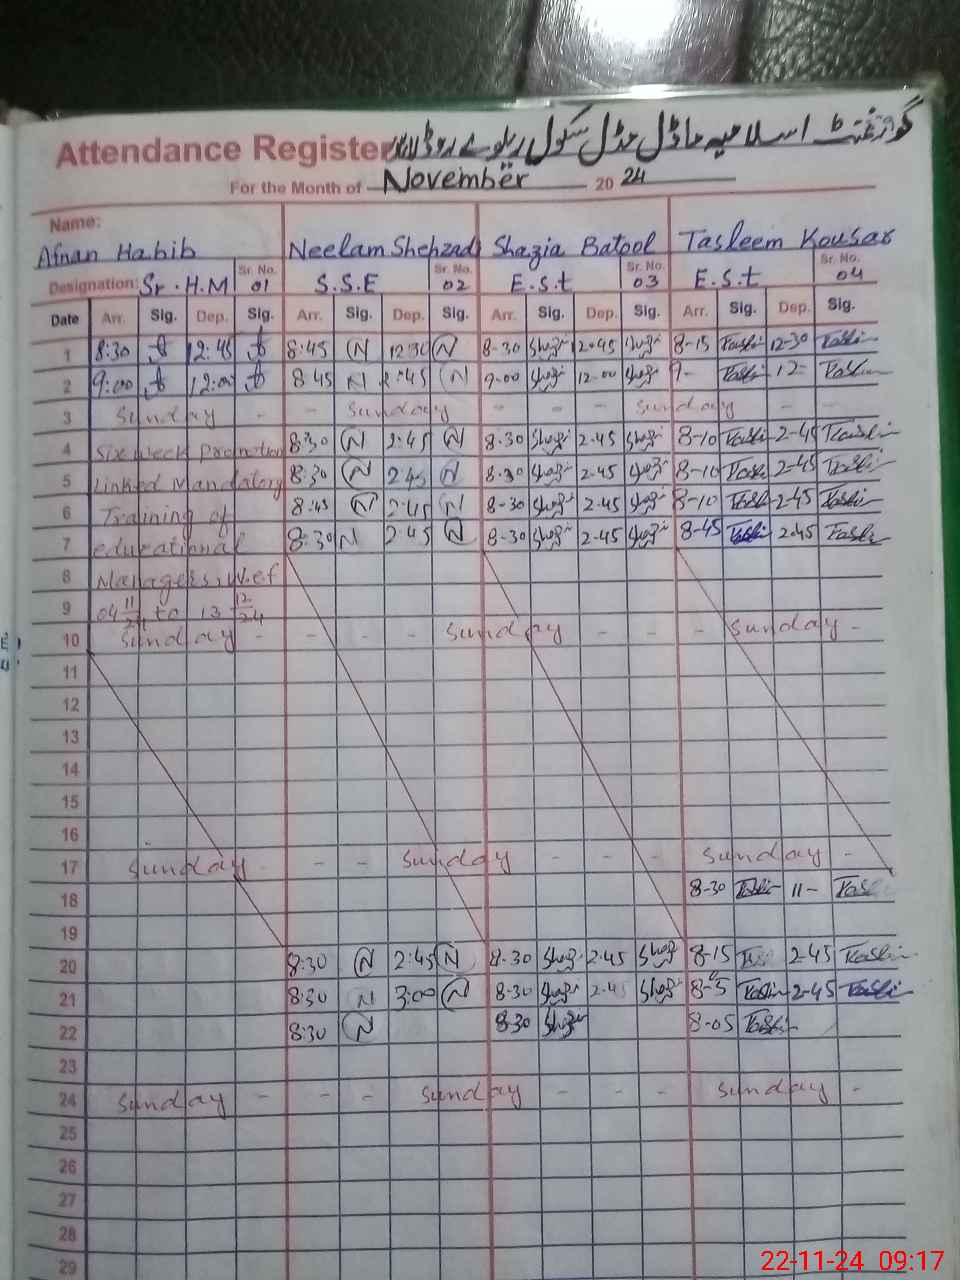 Attendance Register گورنمنٹ اسلامیہ ماڈل مڈل سکول ریلوے روڈ لاہور
For the Month of November 20 24
Name:
Afnan Habib Neelam Shehzadi Shazia Batool Tasleem Kousar
Designation: Sr. H.M Sr. No. 01 S.S.E Sr. No. 02 E.S.t Sr. No. 03 E.S.t Sr. No. 04
Date Arr. Sig. Dep. Sig. Arr. Sig. Dep. Sig. Arr. Sig. Dep. Sig. Arr. Sig. Dep. Sig.
1 8:30 12:45 8:45 N 12:30 N 8-30 2:45 8-15 12-30
2 9:00 12:00 8:45 N 2:45 N 9-00 12-00 9- 12-
3 Sunday - - Sunday - - - Sunday - -
4 Six week promotion 8:30 N 2:45 N 8.30 2.45 8-10 2-45
5 Linked Mandatory 8:30 N 2:45 N 8-30 2-45 8-10 2-45
6 Training of 8:45 N 2:45 N 8-30 2-45 8-10 2-45
7 educational 8:30 N 2:45 N 8-30 2-45 8-45 2:45
8 Managers, w.e.f
9 04 11/24 to 13 12/24
10 Sunday - - - Sunday - - Sunday -
11
12
13
14
15
16
17 Sunday - - - Sunday - - - Sunday -
18 8-30 11-
19
20 8:30 N 2:45 N 8-30 2-45 8-15 2-45
21 8:30 N 3:00 N 8-30 2-4 8-5 2-45
22 8:30 N 8-30 8-05
23
24 Sunday - - - Sunday - - - Sunday -
25
26
27
28
29
22-11-24 09:17